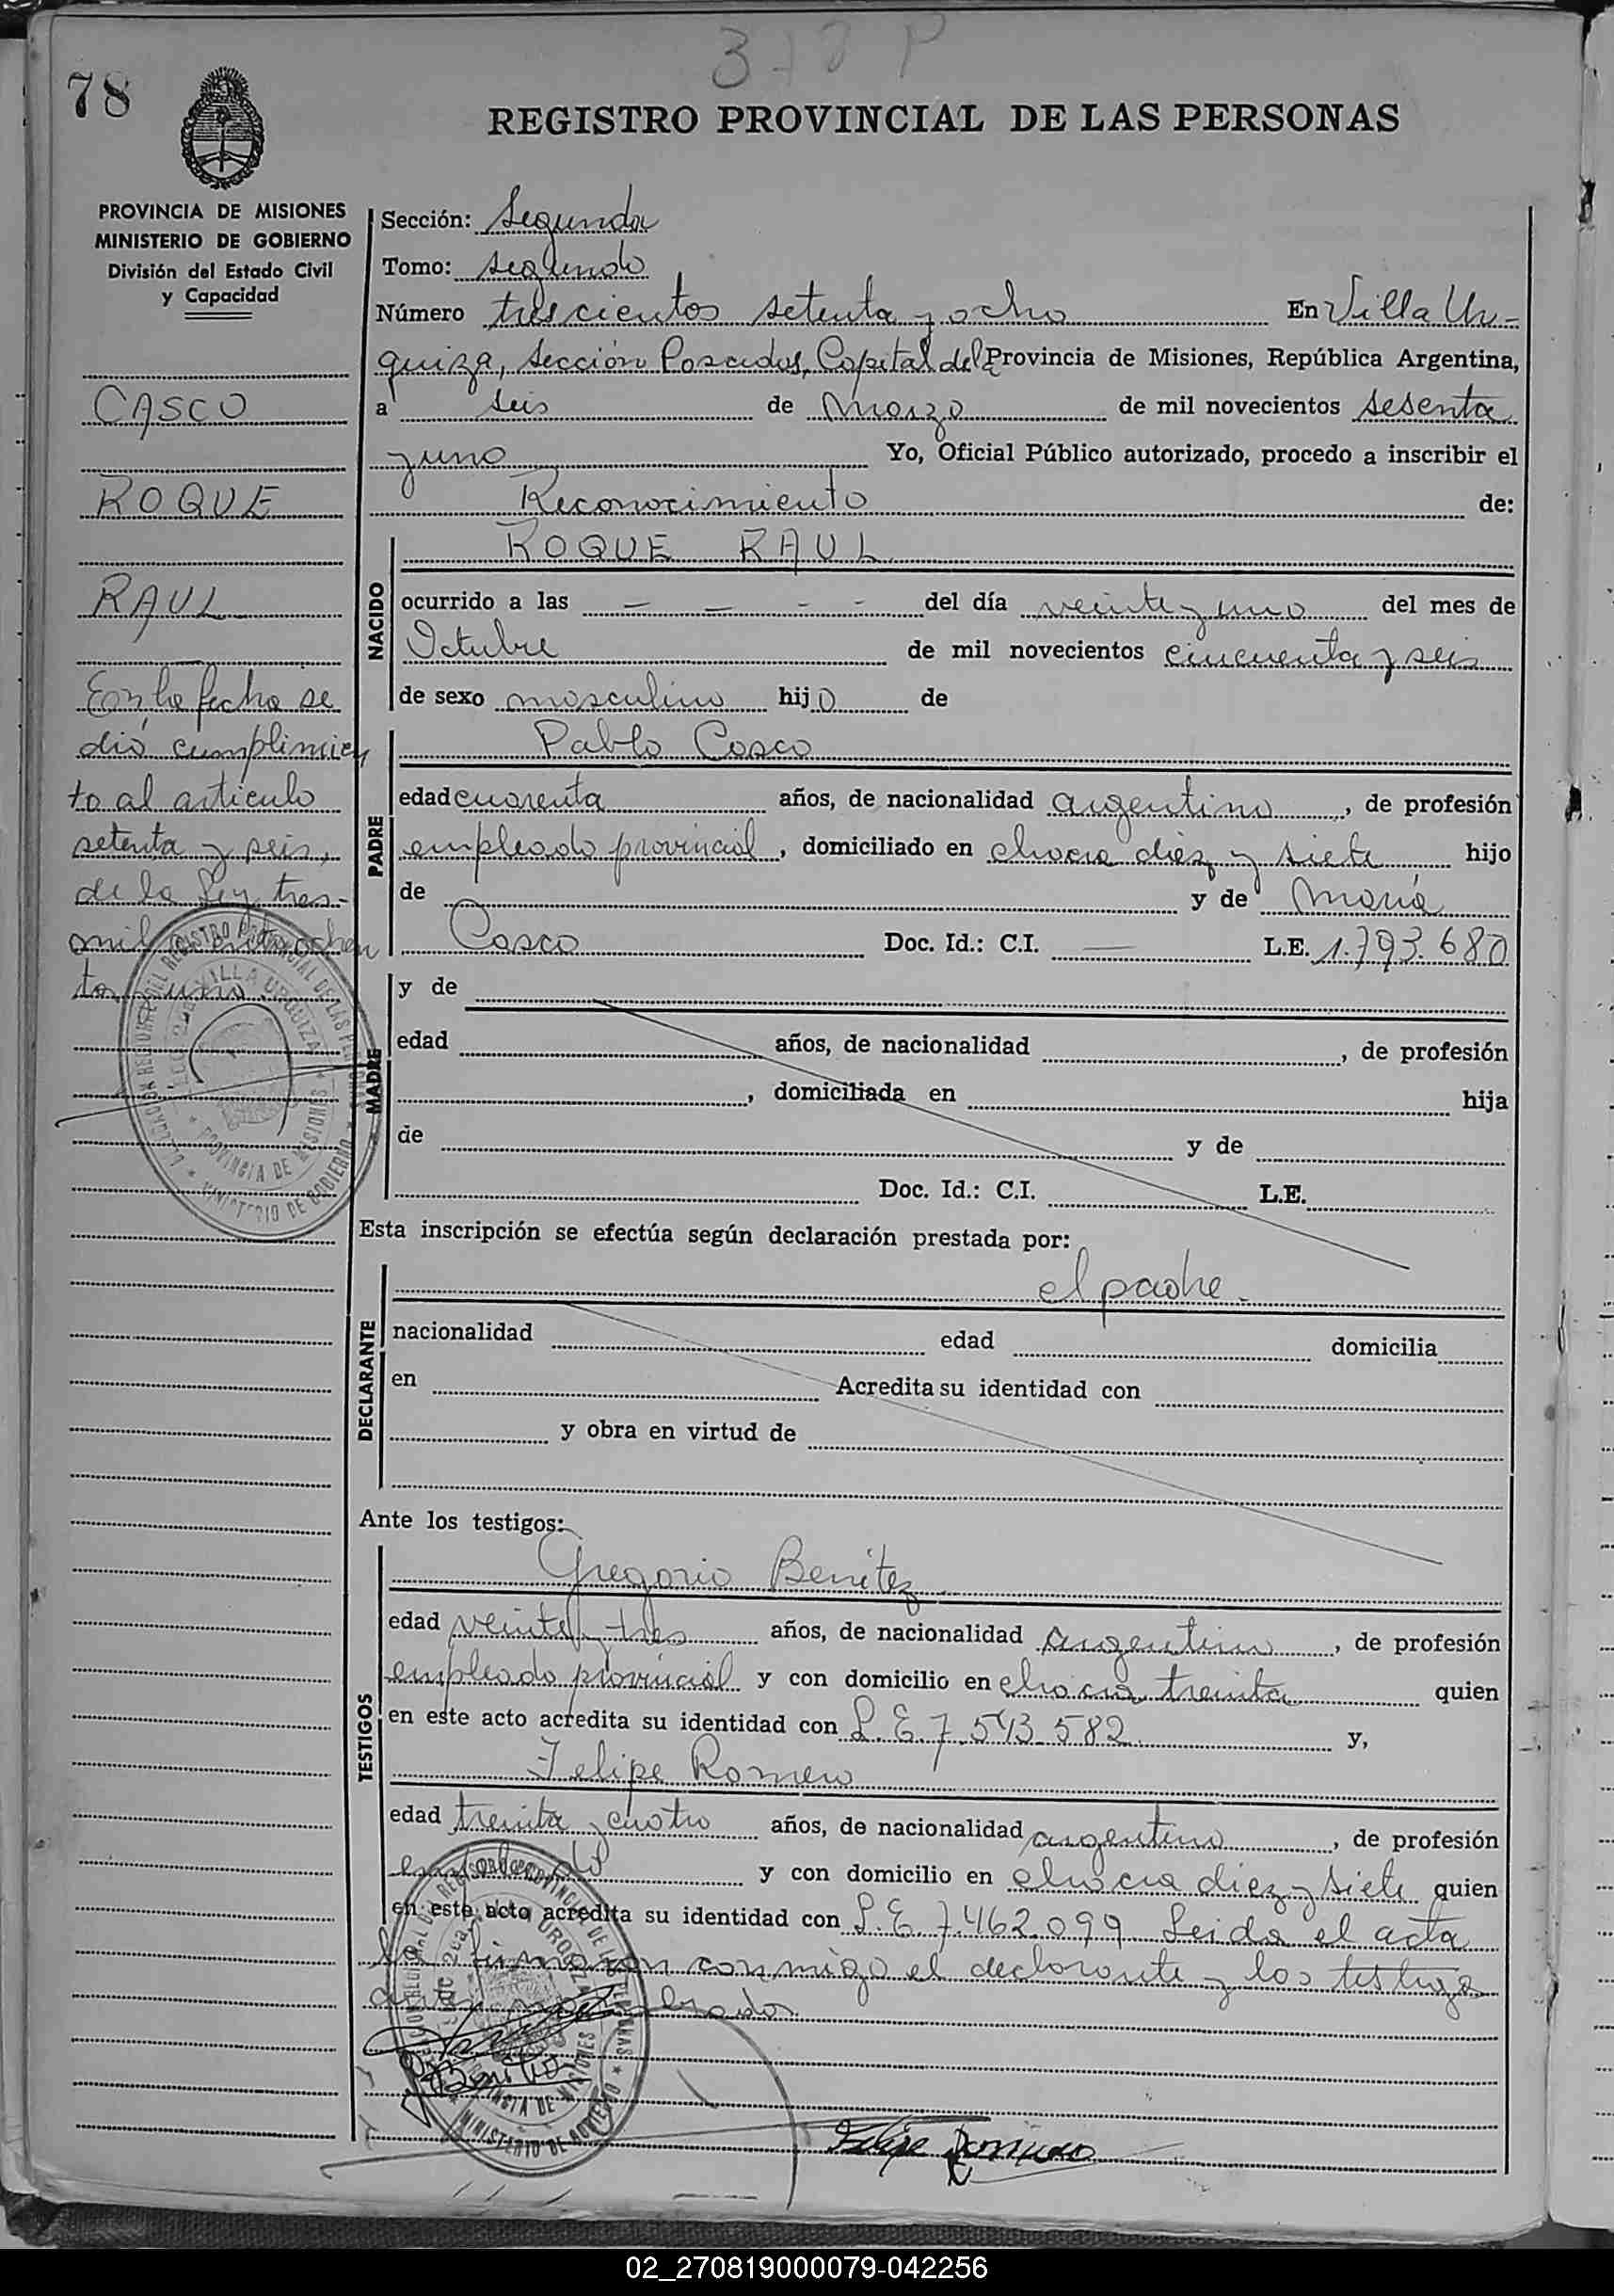 78
REGISTRO PROVINCIAL DE LAS PERSONAS
PROVINCIA DE MISIONES
MINISTERIO DE GOBIERNO
División del Estado Civil
y Capacidad
CASCO
ROQUE
RAUL
En la fecha se
dió cumplimien
to al artículo
setenta y seis,
de la Ley tres
mil ochen
ta y uno
Sección: Segunda
Tomo: segundo
Número trescientos setenta y ocho En Villa Ur-
quiza, sección Posadas, Capital de la Provincia de Misiones, República Argentina,
a seis de Marzo de mil novecientos sesenta
y uno Yo, Oficial Público autorizado, procedo a inscribir el
Reconocimiento de:
NACIDO
ROQUE RAUL
ocurrido a las — — - - del día veinte y uno del mes de
Octubre de mil novecientos cincuenta y seis
de sexo masculino hijo de
PADRE
Pablo Casco
edad cuarenta años, de nacionalidad argentino, de profesión
empleado provincial, domiciliado en chacra diez y siete hijo
de y de María
Casco Doc. Id.: C.I. — L.E. 1.793.680
MADRE
y de
edad años, de nacionalidad , de profesión
, domiciliada en hija
de y de
Doc. Id.: C.I. L.E.
Esta inscripción se efectúa según declaración prestada por:
DECLARANTE
el padre.
nacionalidad edad domicilia
en Acredita su identidad con
y obra en virtud de
Ante los testigos:
TESTIGOS
Gregorio Benitez
edad veinte y tres años, de nacionalidad argentino, de profesión
empleado provincial y con domicilio en chacra treinta quien
en este acto acredita su identidad con L.E. 7.543.582 y,
Felipe Romero
edad treinta y cuatro años, de nacionalidad argentino, de profesión
empleado y con domicilio en chacra diez y siete quien
en este acto acredita su identidad con L.E. 7.462.099 Leida el acta
la firmaron conmigo el declarante y los testigos
Benitez
Felipe Romero
02_270819000079-042256